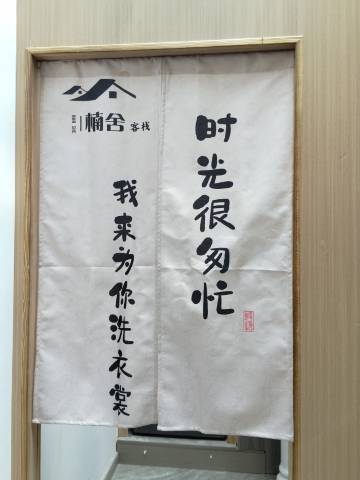 楠舍 客栈
时光很匆忙
我来为你洗衣裳